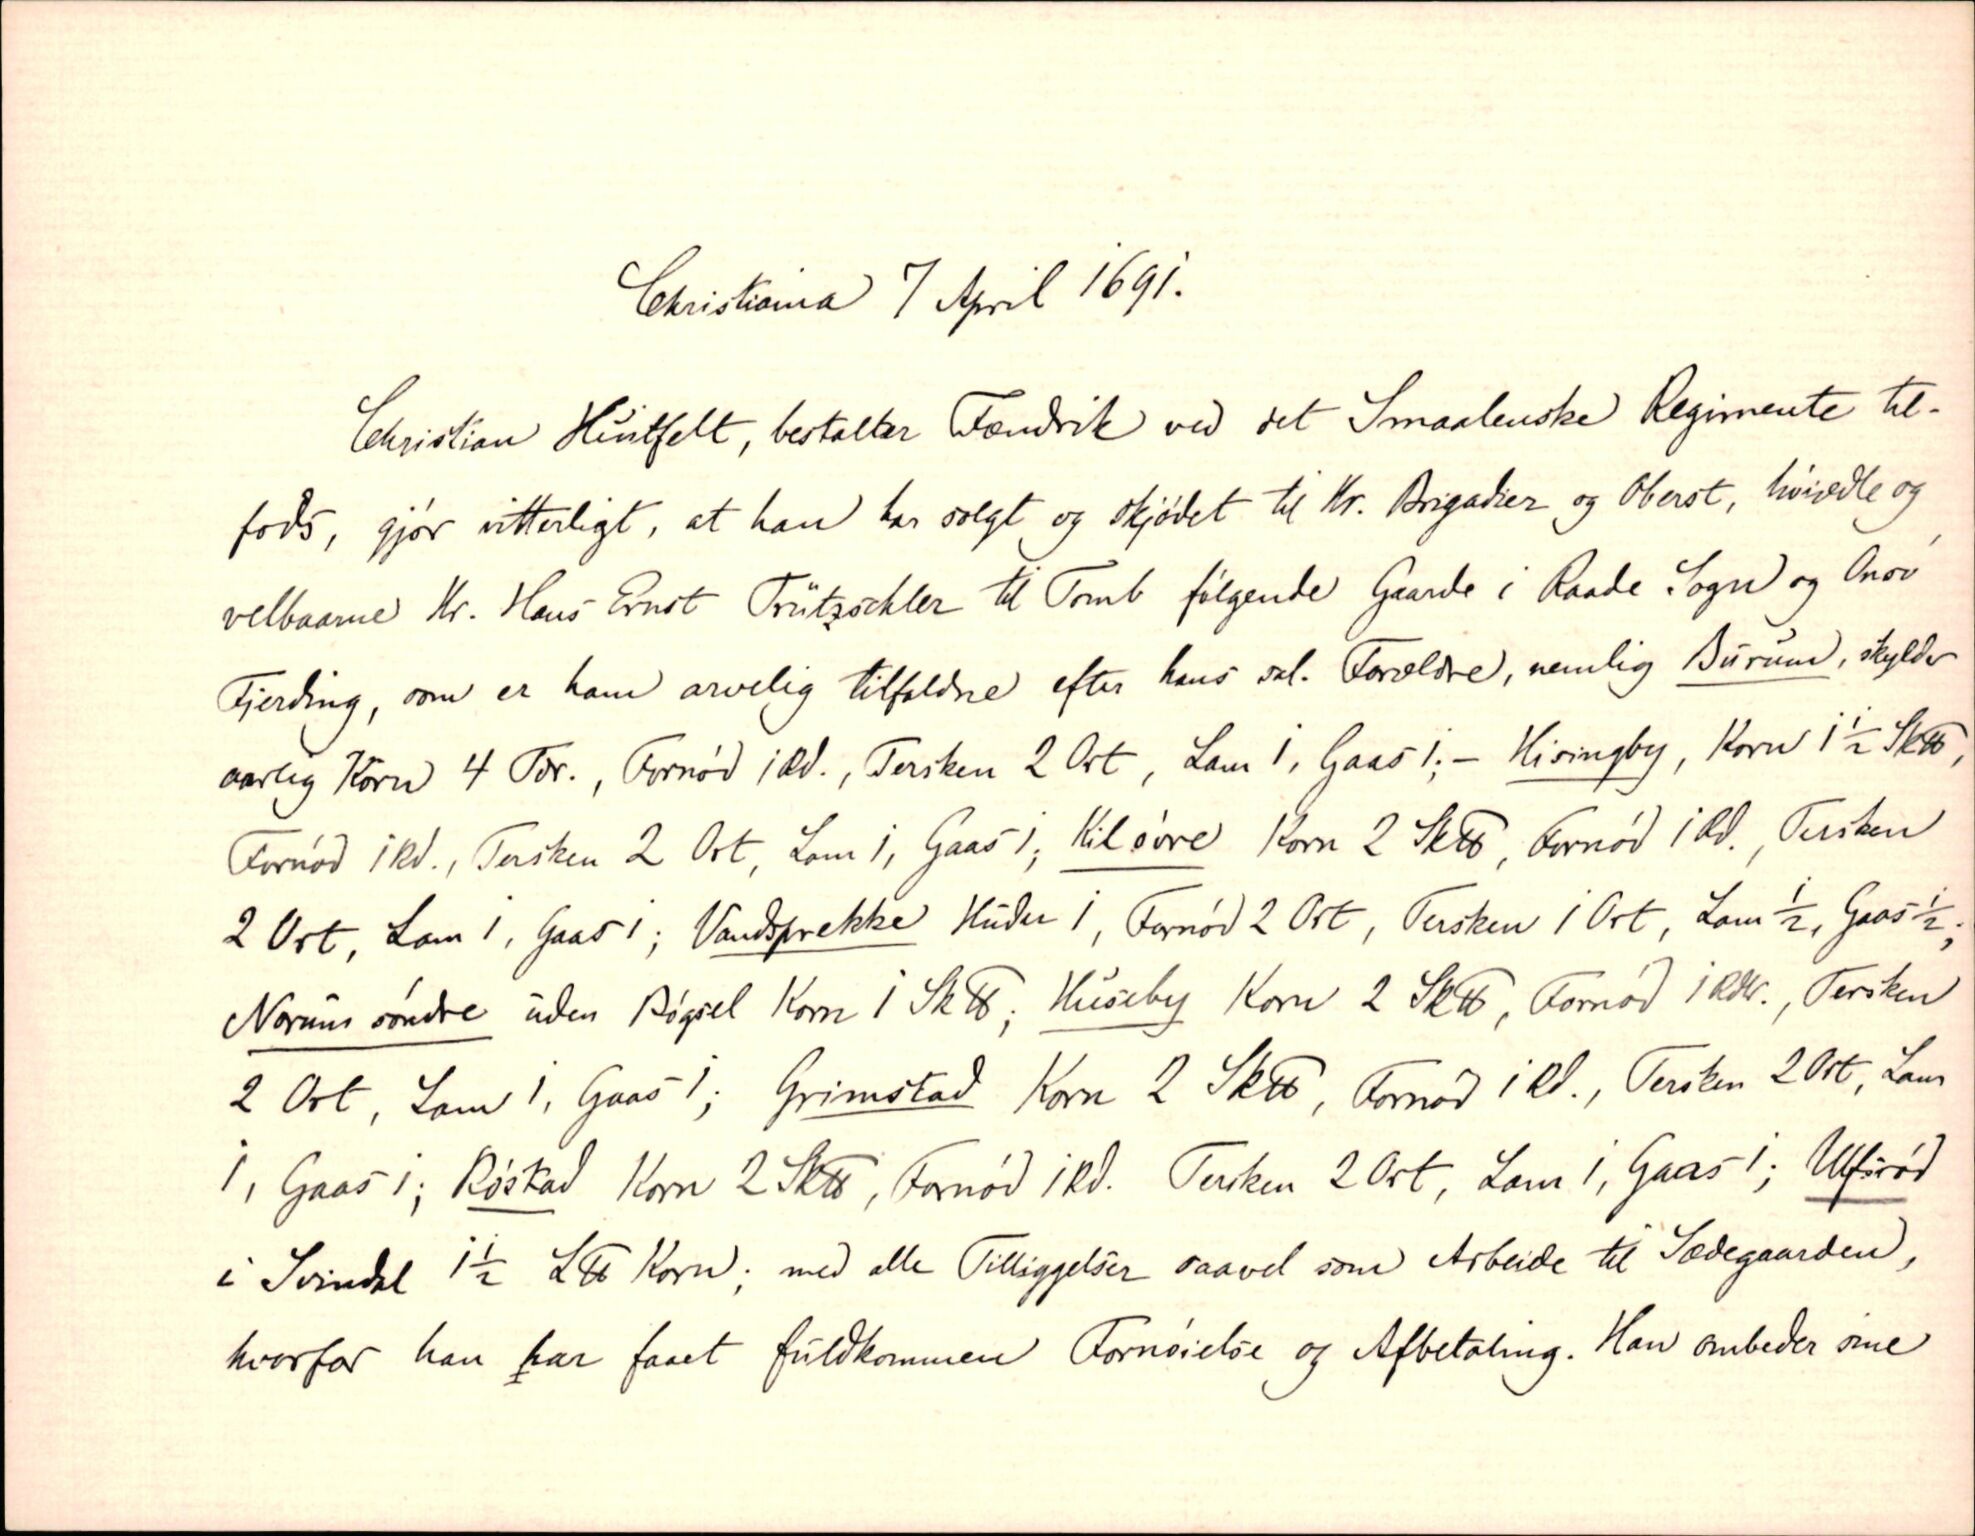 Christiania 7 April 1691.
Christian Huitfelt, bestalter Fændrik ved det Smaalenske Regimente til-
fods, gjør vitterligt, at han har solgt og skjødet til Hr. Brigadier og Oberst, høiædle og
velbaarne Hr. Hans Ernst Trützschler til Tomb følgende Gaarde i Raade Sogn og Onsø
Fjerding, som er ham arvelig tilfaldne efter hans sal. Forældre, nemlig Burum, skylder
aarlig Korn 4 Tdr., Fornød 1 Rd., Tersken 2 Ort, Lam 1, Gaas 1; – Hisingby, Korn 1 1/2 Sk℔,
Fornød 1 Rd., Tersken 2 Ort, Lam 1, Gaas 1; Kil øvre Korn 2 Sk℔, Fornød 1 Rd., Tersken
2 Ort, Lam 1, Gaas 1; Vandsprekke Huder 1, Fornød 2 Ort, Tersken 1 Ort, Lam 1/2, Gaas 1/2;
Norum søndre uden Bøgsel Korn 1 Sk℔; Huseby Korn 2 Sk℔, Fornød 1 Rdlr., Tersken
2 Ort, Lam 1, Gaas 1; Grimstad Korn 2 Sk℔, Fornød 1 Rd., Tersken 2 Ort, Lam
1, Gaas 1; Røstad Korn 2 Sk℔, Fornød 1 Rd. Tersken 2 Ort, Lam 1, Gaas 1; Ulfsrød
i Svindal 1 1/2 L℔ Korn; med alle Tilliggelser saavel som Arbeide til Sædegaarden,
hvorfor han har faaet fuldkommen Fornøielse og Afbetaling. Han ombeder sine